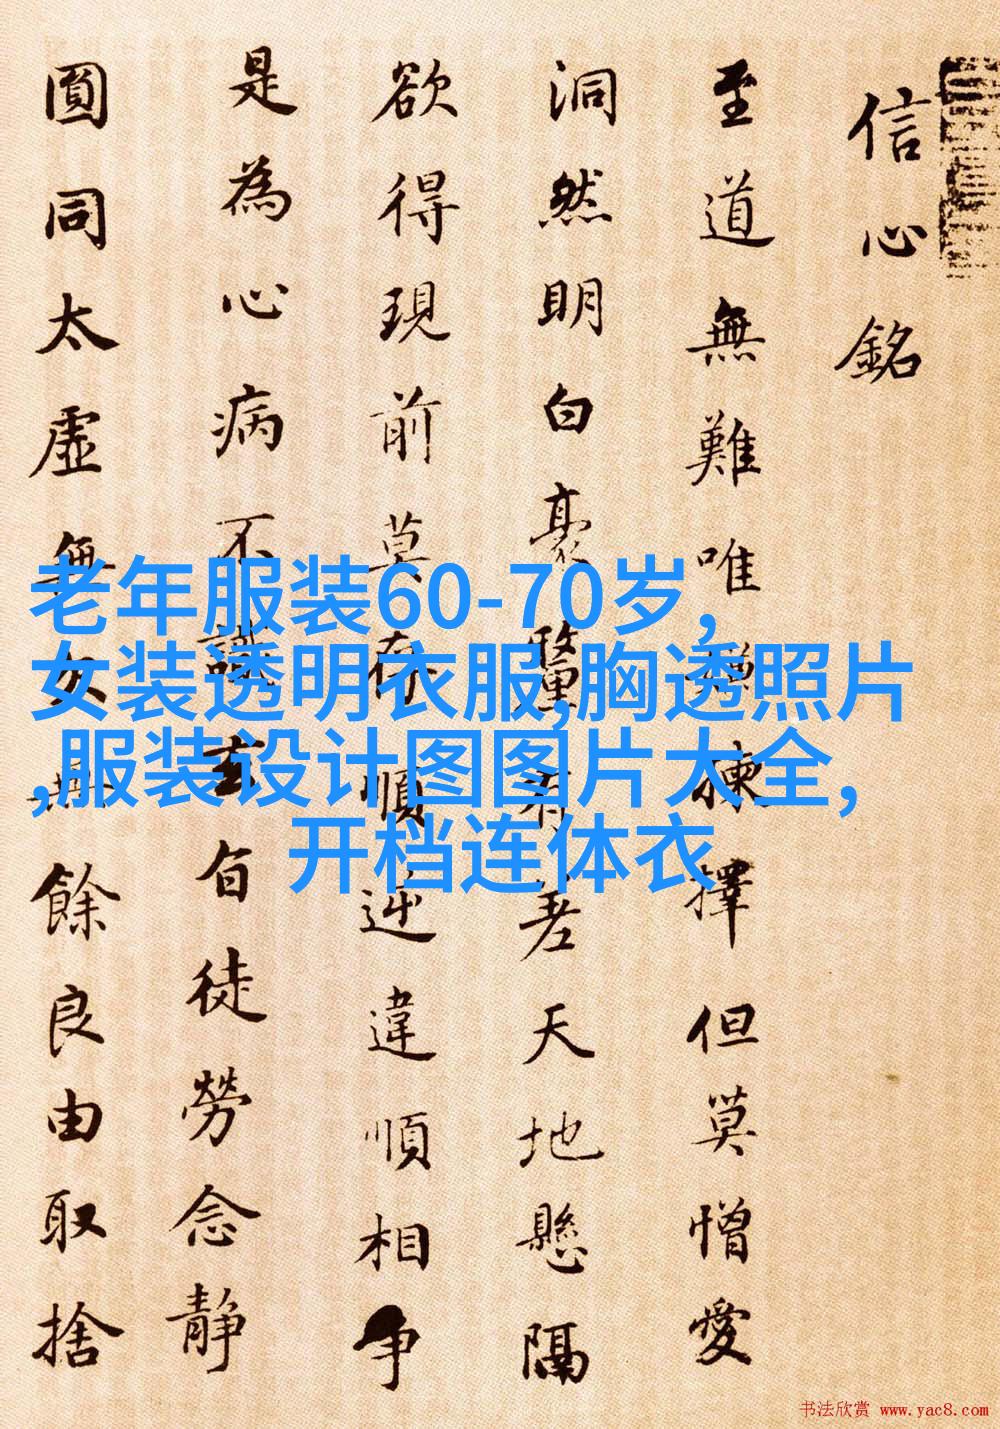 信心銘
至道無難唯嫌揀擇但莫憎愛
洞然明白豪釐有差天地懸隔
欲得現前莫存順逆違順相争
是為心病不識玄旨徒勞念静
圓同太虚無欠無餘良由取捨
老年服装60-70岁,
女装透明衣服,胸透照片
,服装设计图图片大全,
开档连体衣
书法欣赏 www.yac8.com